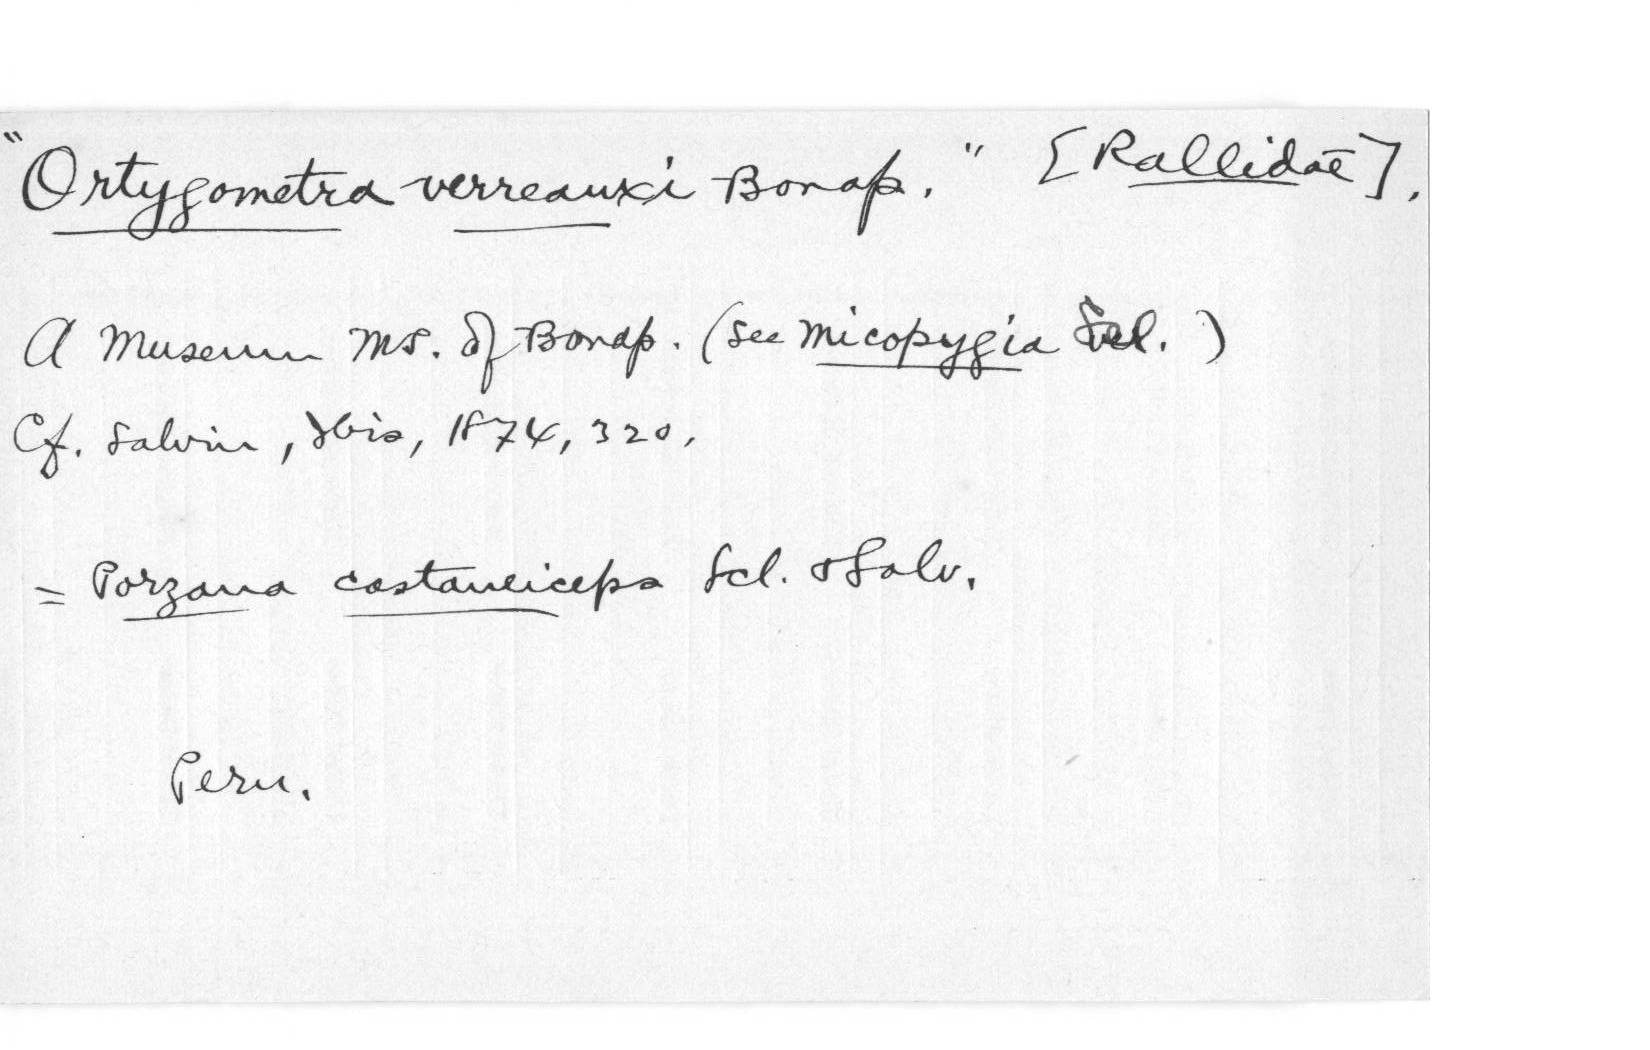 "Ortygometra verreauxi Bonap." [Rallidae].
A Museum MS. of Bonap. (see Micopygia Scl.)
Cf. Salvin, Ibis, 1874, 320.
= Porzana castaneiceps Scl. & Salv.
Peru.